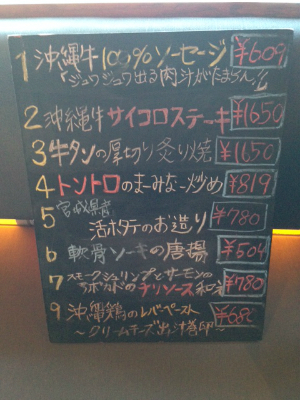 1 沖縄牛100%ソーセージ ¥609
「ジュワジュワ出る肉汁がたまらん!!」
2 沖縄牛サイコロステーキ ¥1650
3 牛タンの厚切り炙り焼 ¥1650
4 トントロのまーみなー炒め ¥819
5 宮城県産
活ホタテのお造り ¥780
6 軟骨ソーキの唐揚 ¥504
7 スモークシュリンプとサーモンの
アボカドのチリソース和え ¥780
9 沖縄鶏のレバーペースト ¥680
〜クリームチーズ